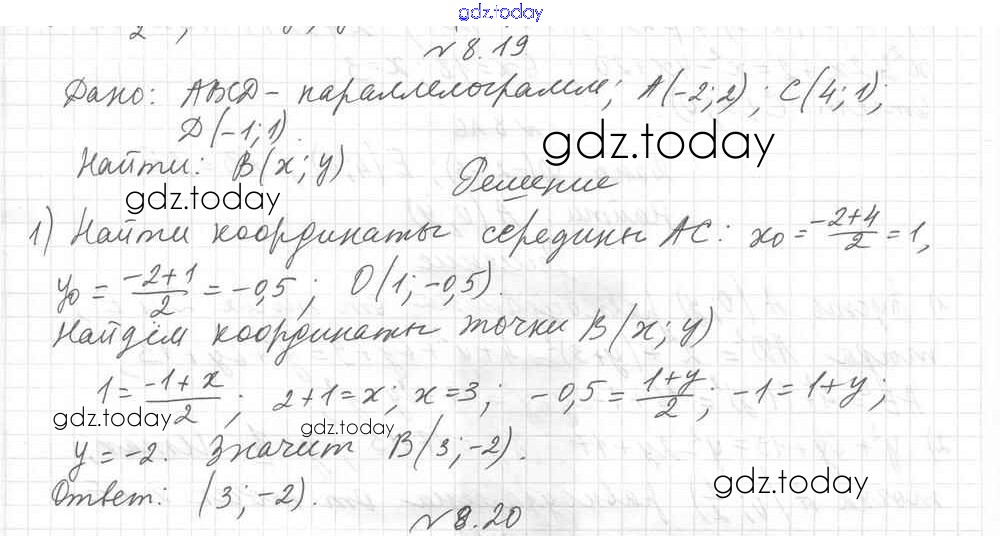 gdz.today
№ 8.19
Дано: ABCD - параллелограмм; A(-2;2); C(4;1);
D(-1;1).
gdz.today
Найти: B(x;y)
Решение
gdz.today
1) Найти координаты середины AC: x₀ = (-2+4)/2 = 1,
y₀ = (-2+1)/2 = -0,5; O(1;-0,5).
Найдём координаты точки B(x;y)
1 = (-1+x)/2; 2+1=x; x=3; -0,5 = (1+y)/2; -1=1+y;
gdz.today
gdz.today
y = -2. Значит B(3;-2).
gdz.today
Ответ: (3;-2).
№ 8.20